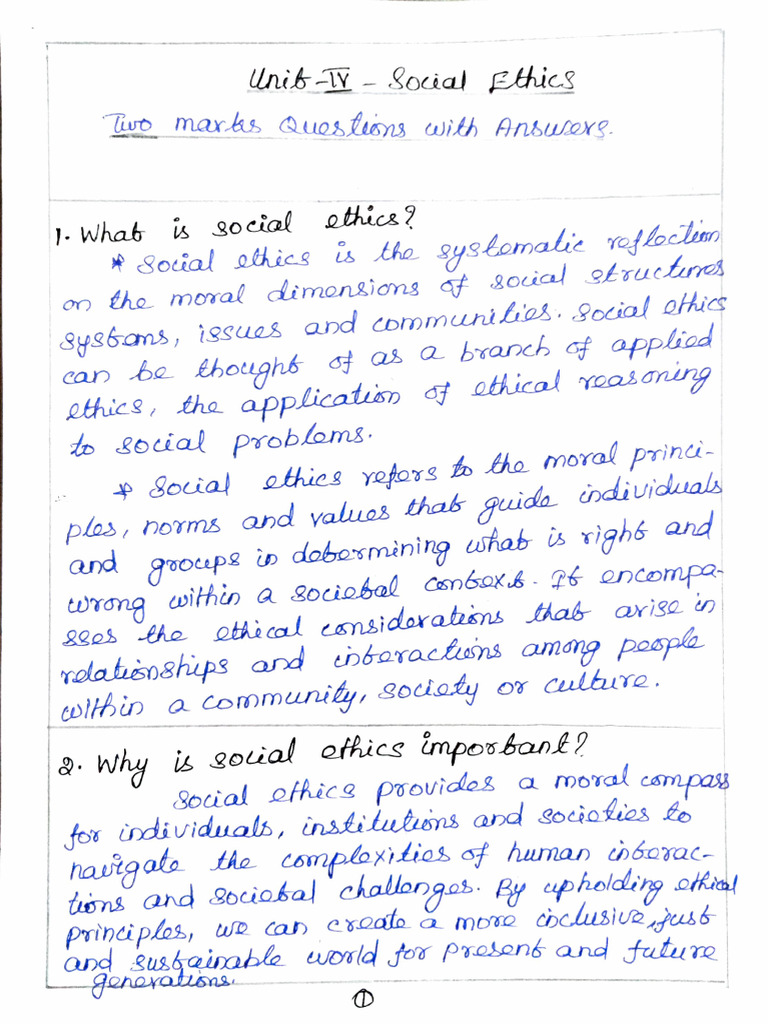 Unit-IV - Social Ethics
Two marks Questions with Answers.
1. What is social ethics?
* Social ethics is the systematic reflection
on the moral dimensions of social structures
systems, issues and communities. Social ethics
can be thought of as a branch of applied
ethics, the application of ethical reasoning
to social problems.
* Social ethics refers to the moral princi-
ples, norms and values that guide individuals
and groups in determining what is right and
wrong within a societal context. It encompa-
sses the ethical considerations that arise in
relationships and interactions among people
within a community, society or culture.
2. Why is social ethics important?
Social ethics provides a moral compass
for individuals, institutions and societies to
navigate the complexities of human interac-
tions and societal challenges. By upholding ethical
principles, we can create a more inclusive, just
and sustainable world for present and future
generations.
1